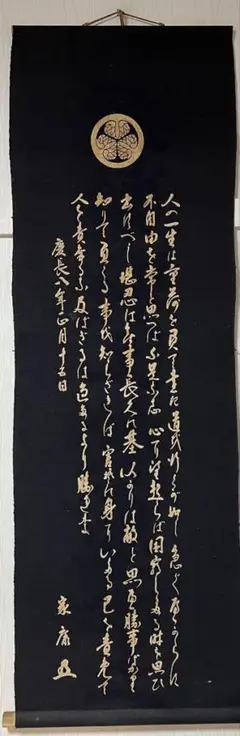 人の一生は重荷を負て遠き道を行くが如し急ぐべからず
不自由を常と思へば不足なし心に望起らば困窮したる時を思ひ
出すべし堪忍は無事長久の基いかりは敵と思へ勝事ばかり
知りて負くる事を知らざれば害其身にいたる己を責めて
人を責むるな及ばざるは過ぎたるより勝れり
慶長八年正月十五日
家康